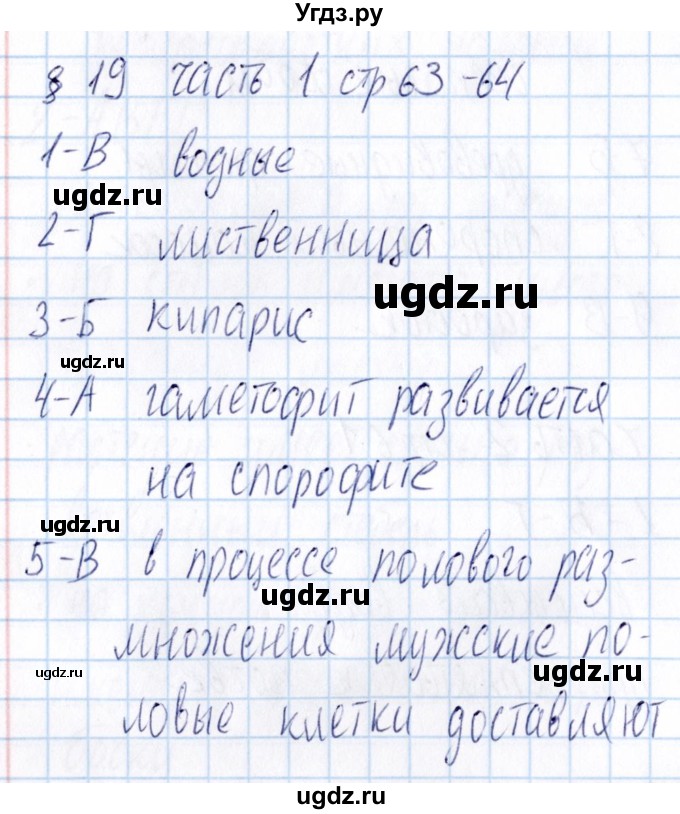 Угдз.ру
§ 19 часть 1 стр 63-64
1-В водные
ugdz.ru
2-Г лиственница
ugdz.ru
3-Б кипарис
ugdz.ru
4-А гаметофит развивается
на спорофите
ugdz.ru
5-В в процессе полового раз-
ugdz.ru
множения мужские по-
ugdz.ru
ugdz.ru
ловые клетки доставляют
ugdz.ru